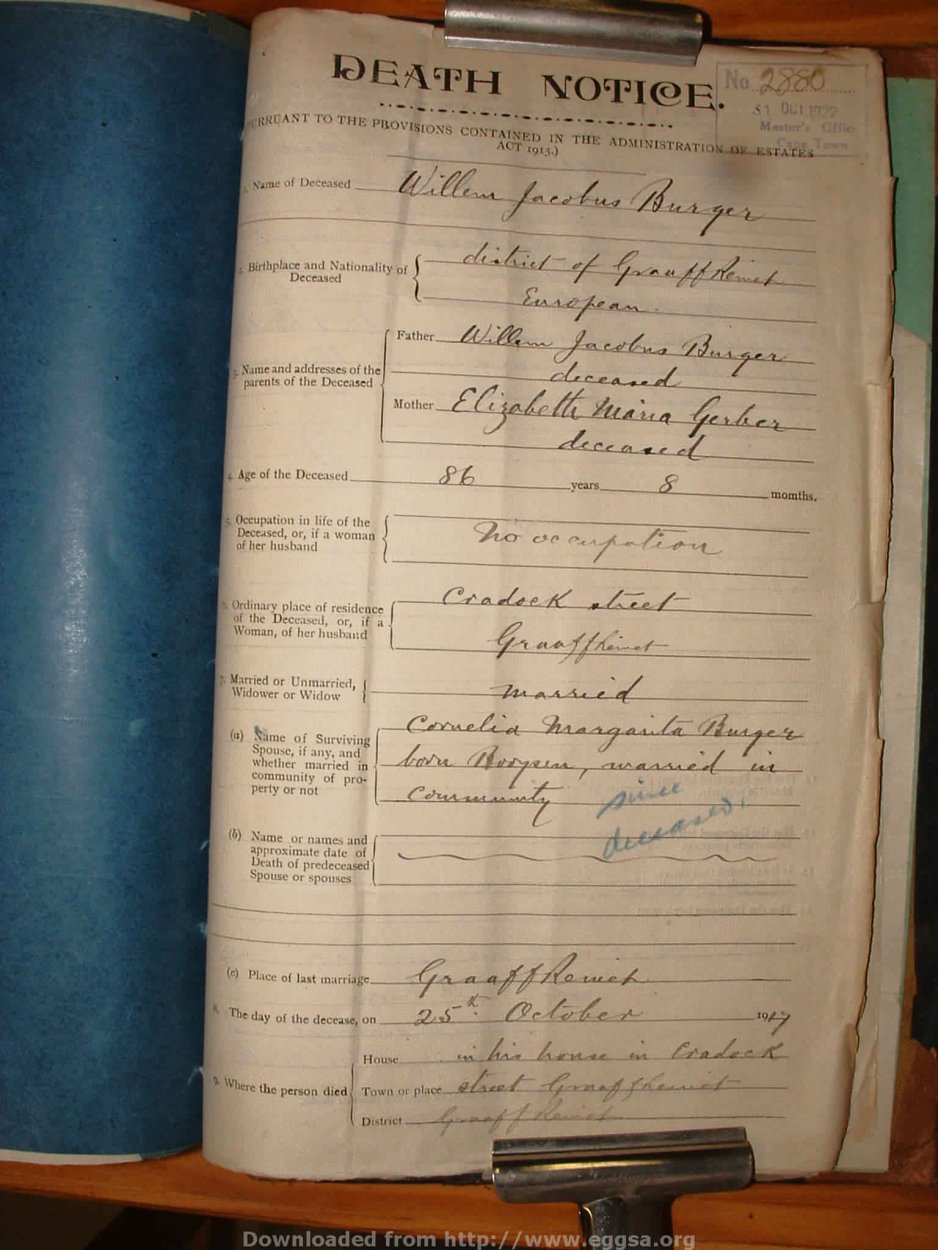 DEATH NOTICE.
No. 2880
31 OCT 1922
Master's Office
Cape Town
PURRUANT TO THE PROVISIONS CONTAINED IN THE ADMINISTRATION OF ESTATES
ACT 1913.)
1. Name of Deceased Willem Jacobus Burger
2. Birthplace and Nationality of
Deceased
district of Graaff Reinet
European
3. Name and addresses of the
parents of the Deceased
Father Willem Jacobus Burger
deceased
Mother Elizabeth Maria Gerber
deceased
4. Age of the Deceased 86 years 8 momths.
5. Occupation in life of the
Deceased, or, if a woman
of her husband
No occupation
6. Ordinary place of residence
of the Deceased, or, if a
Woman, of her husband
Cradock street
Graaff Reinet
7. Married or Unmarried,
Widower or Widow
married
(a) Name of Surviving
Spouse, if any, and
whether married in
community of pro-
perty or not
Cornelia Margarita Burger
born Booysen, married in
Community
since
deceased!
(b) Name or names and
approximate date of
Death of predeceased
Spouse or spouses
(c) Place of last marriage Graaff Reinet
8. The day of the decease, on 25th October
9. Where the person died
House in his house in Cradock
Town or place street Graaff Reinet
District Graaff Reinet
Downloaded from http://www.eggsa.org